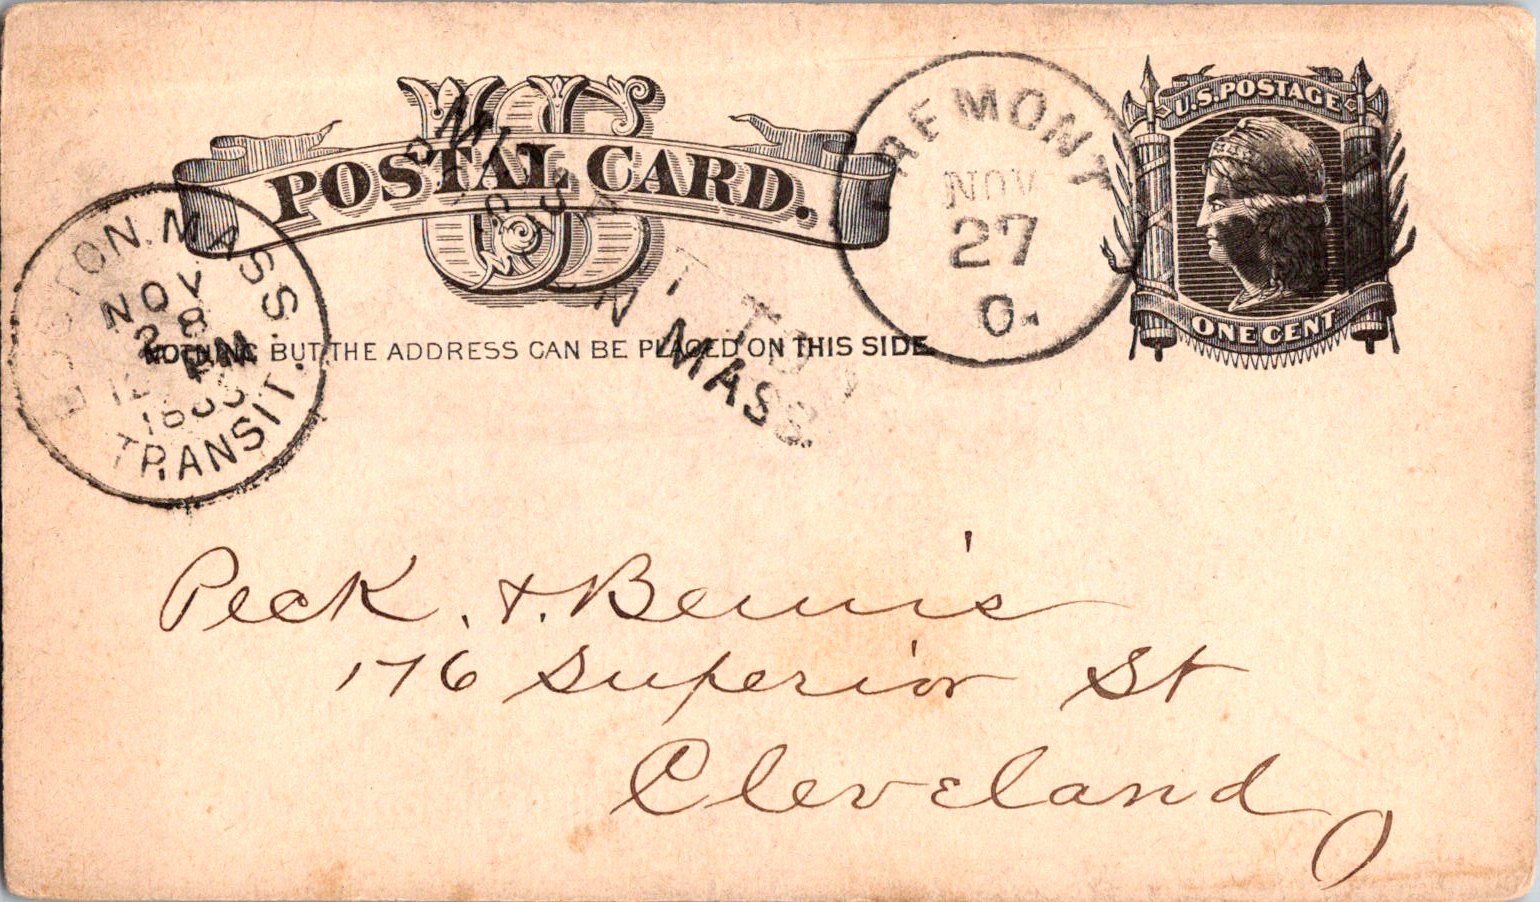 US
POSTAL CARD.
U.S. POSTAGE
ONE CENT
NOTHING BUT THE ADDRESS CAN BE PLACED ON THIS SIDE.
REMONT
NOV
27
O.
BOSTON. MASS.
NOV
28
PM
TRANSIT.
MASS.
Peck. &. Bemis
176 Superior St
Cleveland
O